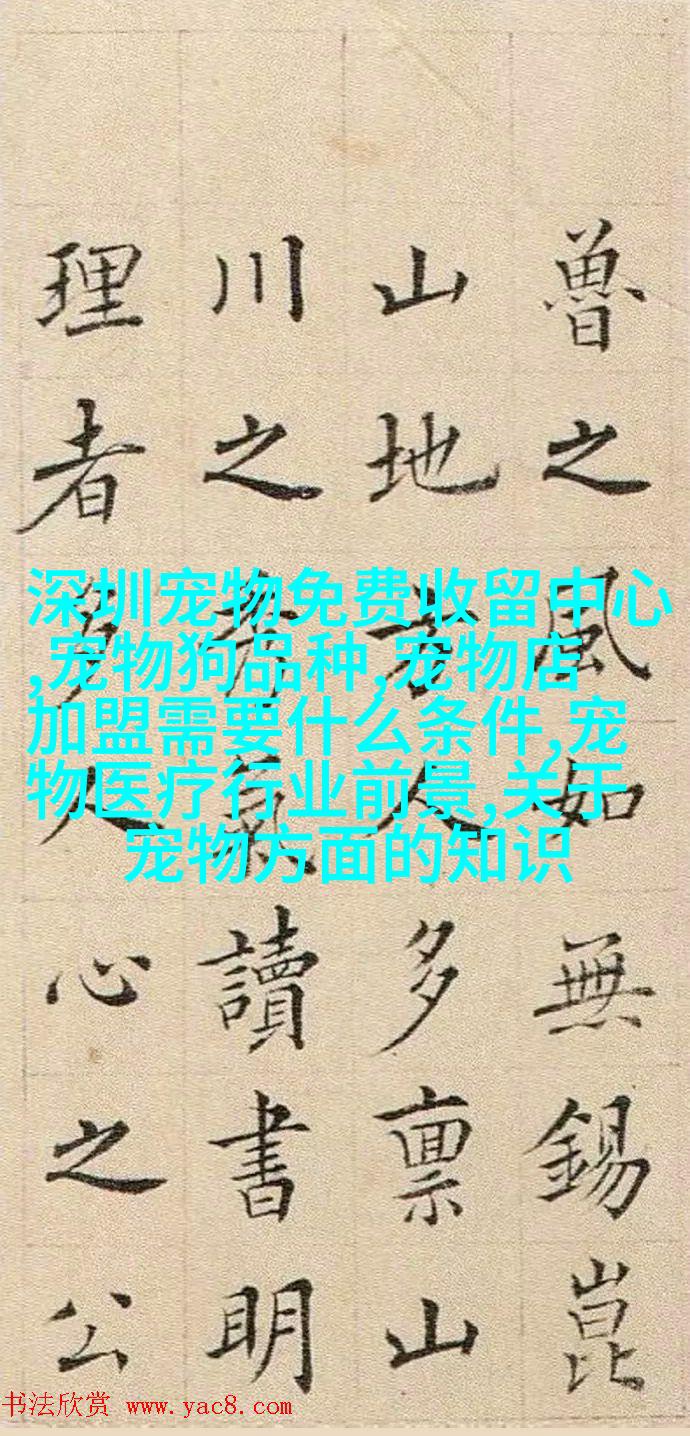 魯之風如無錫崑
山地人多禀山
川之秀氣讀書明
理者多人心之公
深圳宠物免费收留中心
,宠物狗品种,宠物店
加盟需要什么条件,宠
物医疗行业前景,关于
宠物方面的知识
书法欣赏 www.yac8.com